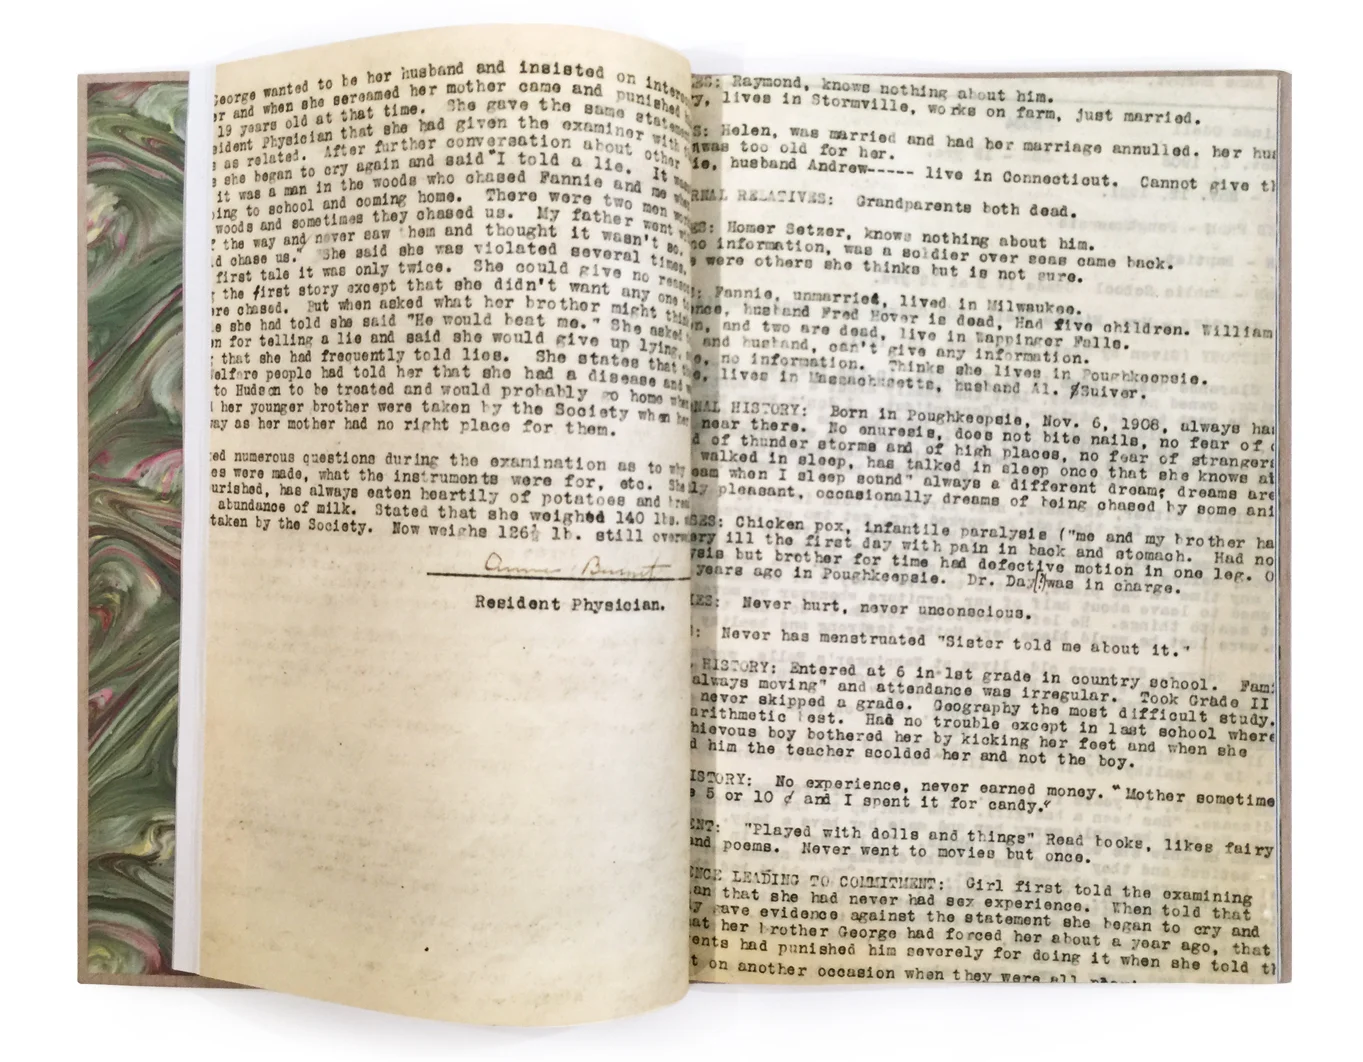 George wanted to be her husband and insisted on
er and when she screamed her mother came and punished
19 years old at that time. She gave the same
ident Physician that she had given the examiner with
s as related. After further conversation about other
she began to cry again and said "I told a lie. It
it was a man in the woods who chased Fannie and me
ing to school and coming home. There were two men
woods and sometimes they chased us. My father went
the way and never saw hem and thought it wasn't so.
d chase us." She said she was violated several times,
first tale it was only twice. She could give no
the first story except that she didn't want any one
ere chased. But when asked what her brother might
e she had told she said "He would beat me." She asked
n for telling a lie and said she would give up lying,
that she had frequently told lies. She states that
elfare people had told her that she had a disease and
to Hudson to be treated and would probably go home
her younger brother were taken by the Society when
ay as her mother had no right place for them.
ed numerous questions during the examination as to why
es were made, what the instruments were for, etc. She
urished, has always eaten heartily of potatoes and
abundance of milk. Stated that she weighed 140 lbs.
taken by the Society. Now weighs 126½ lb. still
Resident Physician.
ES: Raymond, knows nothing about him.
y, lives in Stormville, works on farm, just married.
S: Helen, was married and had her marriage annulled. her
was too old for her.
ie, husband Andrew----- live in Connecticut. Cannot give
RNAL RELATIVES: Grandparents both dead.
ES: Homer Setzer, knows nothing about him.
no information, was a soldier over seas came back.
e were others she thinks but is not sure.
: Fannie, unmarried, lived in Milwaukee.
nce, husband Fred Hover is dead, Had five children. William
n, and two are dead, live in Wappinger Falls.
and husband, can't give any information.
e, no information. Thinks she lives in Poughkeepsie.
e, lives in Massachusetts, husband Al. Suiver.
NAL HISTORY: Born in Poughkeepsie, Nov. 6, 1908, always
near there. No enuresis, does not bite nails, no fear of
d of thunder storms and of high places, no fear of strangers
walked in sleep, has talked in sleep once that she knows
eam when I sleep sound" always a different dream; dreams are
ly pleasant, occasionally dreams of being chased by some ani
SES: Chicken pox, infantile paralysis ("me and my brother ha
ery ill the first day with pain in back and stomach. Had no
ysis but brother for time had defective motion in one leg.
years ago in Poughkeepsie. Dr. Day(?)was in charge.
IES: Never hurt, never unconscious.
: Never has menstruated "Sister told me about it."
HISTORY: Entered at 6 in 1st grade in country school. Fam
always moving" and attendance was irregular. Took Grade II
never skipped a grade. Geography the most difficult study.
arithmetic best. Had no trouble except in last school where
hievous boy bothered her by kicking her feet and when she
d him the teacher scolded her and not the boy.
ISTORY: No experience, never earned money. "Mother sometime
e 5 or 10 ¢ and I spent it for candy."
ENT: "Played with dolls and things" Read books, likes fairy
nd poems. Never went to movies but once.
ENCE LEADING TO COMMITMENT: Girl first told the examining
an that she had never had sex experience. When told that
y gave evidence against the statement she began to cry and
at her brother George had forced her about a year ago, that
ents had punished him severely for doing it when she told
t on another occasion when they were all